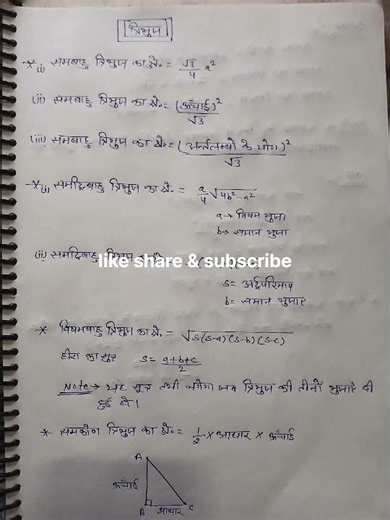 त्रिभुज
* (i) समबाहु त्रिभुज का क्षे० = √3/4 a²
(ii) समबाहु त्रिभुज का क्षे० = (ऊँचाई)²/√3
(iii) समबाहु त्रिभुज का क्षे० = (अन्तर्लम्बों के योग)²/√3
* (i) समद्विबाहु त्रिभुज का क्षे० = a/4 √4b²-a²
a → विषम भुजा
b → समान भुजा
(ii) समद्विबाहु
like share & subscribe
s = अर्द्धपरिमाप
b = समान भुजाएं
* विषमबाहु त्रिभुज का क्षे० = √s(s-a)(s-b)(s-c)
हीरो का सूत्र s = a+b+c/2
Note → यह सूत्र तभी लगेगा जब त्रिभुज की तीनों भुजाएं दी
हुई हो।
* समकोण त्रिभुज का क्षे० = 1/2 × आधार × ऊँचाई
A
ऊँचाई
B आधार C